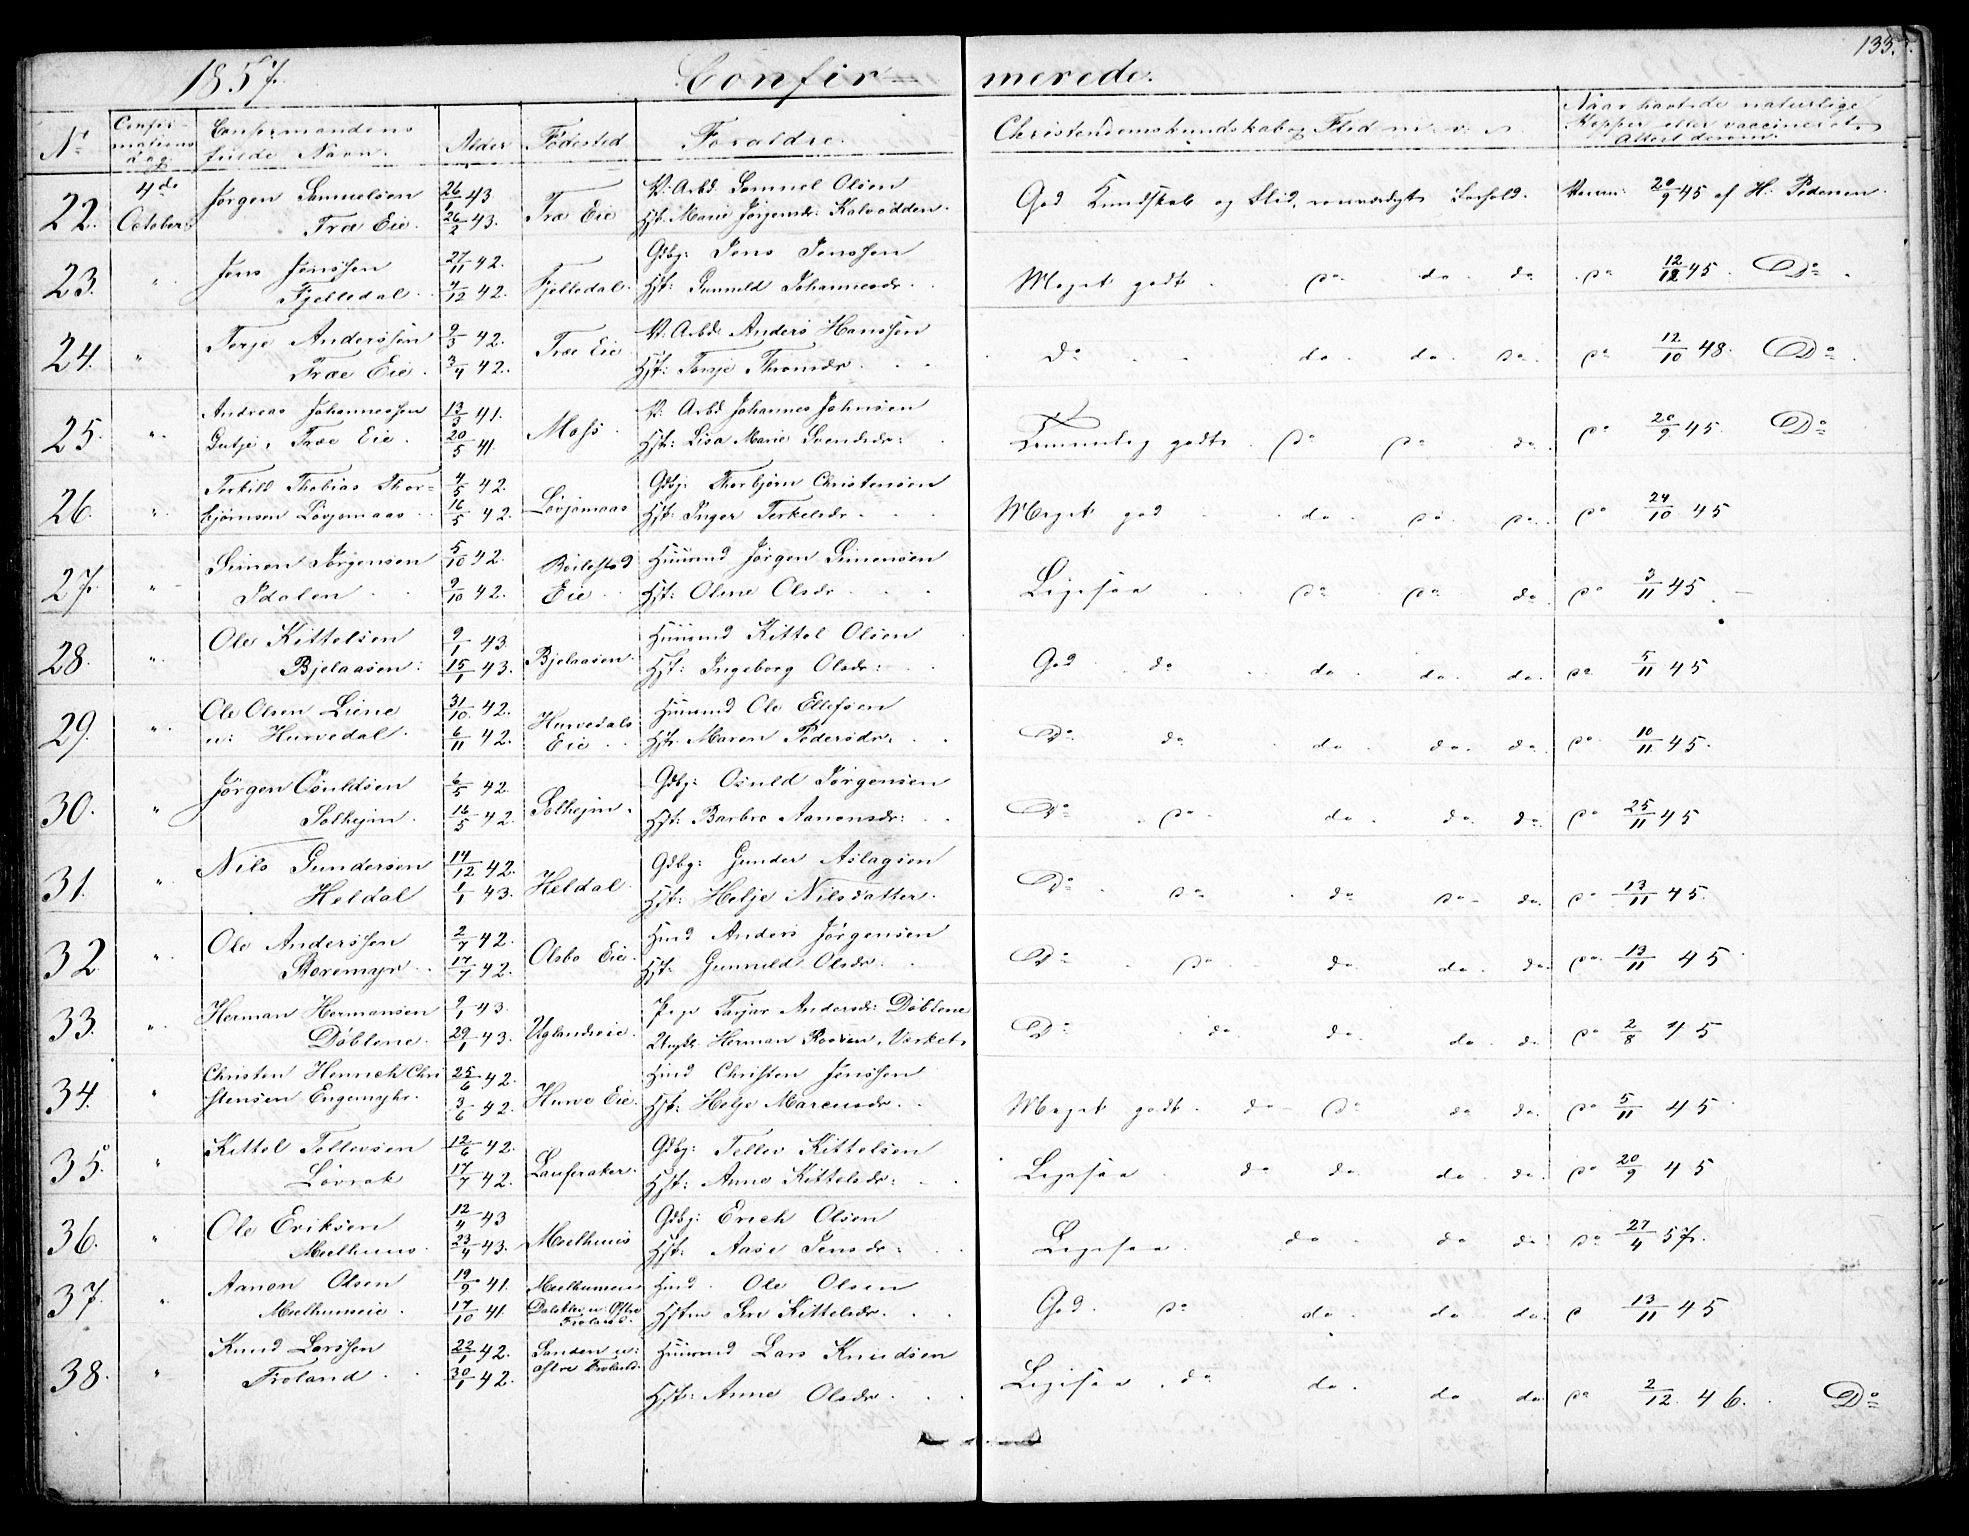 133.
1857. Confirmerede.
No Confirmationsdag. Confirmandens fulde Navn. Alder Fødested Foræltre. Christendomskundskab og Flid m. v. Naar havt de naturlige Kopper eller vaccineret. Attest derom.
22. 4de October Jørgen Samuelsen Træ Eie. 26/1 43 26/2 43. Træ Eie Samuel Olsen Hst. Marie Jørgensdr. Kalvodden. God Kundskab og Flid, Forhold. 20/9 45 af H. Pedersen.
23. " Jens Jensen Fjelledal. 27/11 42. 4/12 42. Fjelledal. Gdbg: Jens Jenssen Hst. Gunnild Johannesdr. Meget godt do do do 12/12 45. Do
24. " Terje Anderssen Træ Eie. 9/3 42. 3/4 42. Træ Eie Anders Hanssen Hst: Torje Thronsdr. Do do do do do 12/10 48. Do
25. " Andreas Johannessen Træ Eie. 13/3 41. 20/5 41. Moss. Johannes Johnsen Hst: Lisa Marie Svendsdr: Temmelig godt do do do do 20/9 45. Do
26. " Terkild Thobias Thorbjørnsen Løvjomaas 4/5 42. 16/5 42. Løvjomaas Gdbg. Thorbjørn Christensen Hst: Inger Terkelsdr. Meget god do do do do 24/10 45
27. " Simon Jørgensen Idalen 5/10 42. 9/10 42. Bøilestad Eie Huusmd Jørgen Simonsen Hst: Olene Olsdr. Ligesaa do do do do 3/11 45.
28. " Ole Kittelsen Bjelaasen: 9/1 43. 15/1 43. Bjelaasen. Huusmd Kittel Olsen Hst: Ingeborg Olsdr: God do do do do do 5/11 45
29. " Ole Olsen Liene u: Hurvedal. 31/10 42. 6/11 42. Hurvedals Eie Huusmd Ole Ellefsen Hst. Maren Pedersdr. Do do do do do do 10/11 45.
30. " Jørgen Osuldsen Solhejm. 6/5 42. 16/5 42. Solhejm. Gdbg: Osuld Jørgensen Hst: Barbro Aanonsdr: Do do do do do do 25/11 45
31. " Nils Gundersen Heldal 14/12 42. 1/1 43. Heldal Gdbg: Gunder Aslagsen Hst: Helje Nilsdatter. Do do do do do do 13/11 45.
32 " Ole Anderssen Storemyr. 2/7 42. 17/7 42. Olsbo Eie. Hmd Anders Jørgensen Hst: Gunnild Olsdr. Do do do do do do 13/11 45
33. " Herman Hermansen Døblene. 9/1 43. 29/1 43. Uglandseie. Pige Tarjer Andersdr: Døblene Ungkr. Herman Verket. Do do do do do do 2/8 45
34. " Christen Henrich Christensen Engemyhr. 25/6 42. 3/6 42. Hurve Eie. Hmd Christen Jenssen Hst: Helje Marcusdr. Meget godt. do do do do do 5/11 45
35. " Kittel Tellevsen Løvrak 12/6 42. 17/7 42. Lauveraker. Gdbg: Tellev Kittelsen Hst: Anne Kittelsdr: Ligesaa do do do do do 20/9 45
36. " Ole Eriksen Mælhuus. 12/4 43 23/4 43. Mælhuus Gdbg: Erich Olsen Hst: Aase Jensdr: Ligesaa. do do do do 27/4 57.
37. " Aanon Olsen Mælhuuseie. 19/9 41. 17/10 41. Mælhuuseie u: Østre Froland. Hmd Ole Olsen Hstm Siri Kittelsdr. God. do do do do 13/11 45
38. " Knud Larssen Froland 22/1 42. 30/1 42. Sanden u: østre Froland. Huusmd Lars Knudsen Hst: Anne Olsdr. Ligesaa. do do do do do 2/12 46. Do